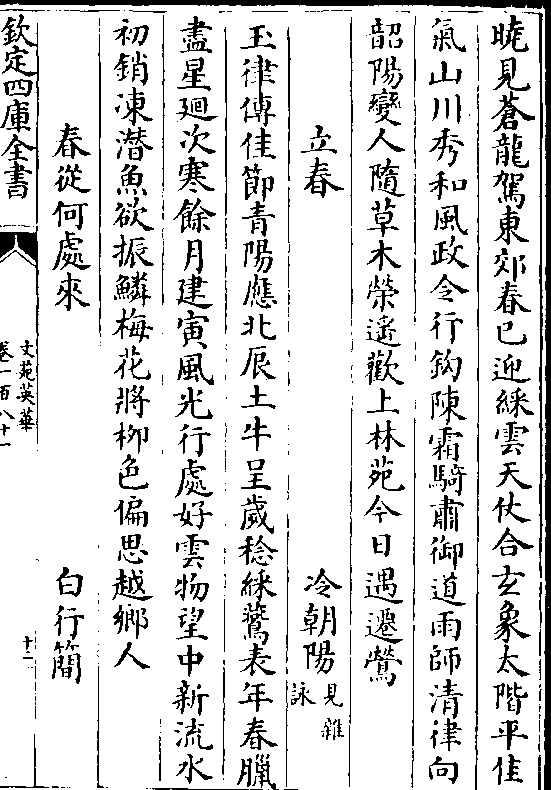 曉見蒼龍駕東郊春已迎綵雲天仗合玄象太階平佳
氣山川秀和風政令行鈎陳霜騎肅御道雨師清律向
韶陽變人隨草木榮遙歡上林苑今日遇遷鶯
立春　冷朝陽 見雜詠
玉律傳佳節青陽應北辰土牛呈歲稔綵鷰表年春臘
盡星廻次寒餘月建寅風光行處好雲物望中新流水
初銷凍潛魚欲振鱗梅花將柳色偏思越鄉人
春從何處來　白行簡
欽定四庫全書
文苑英華
卷一百八十一
十二